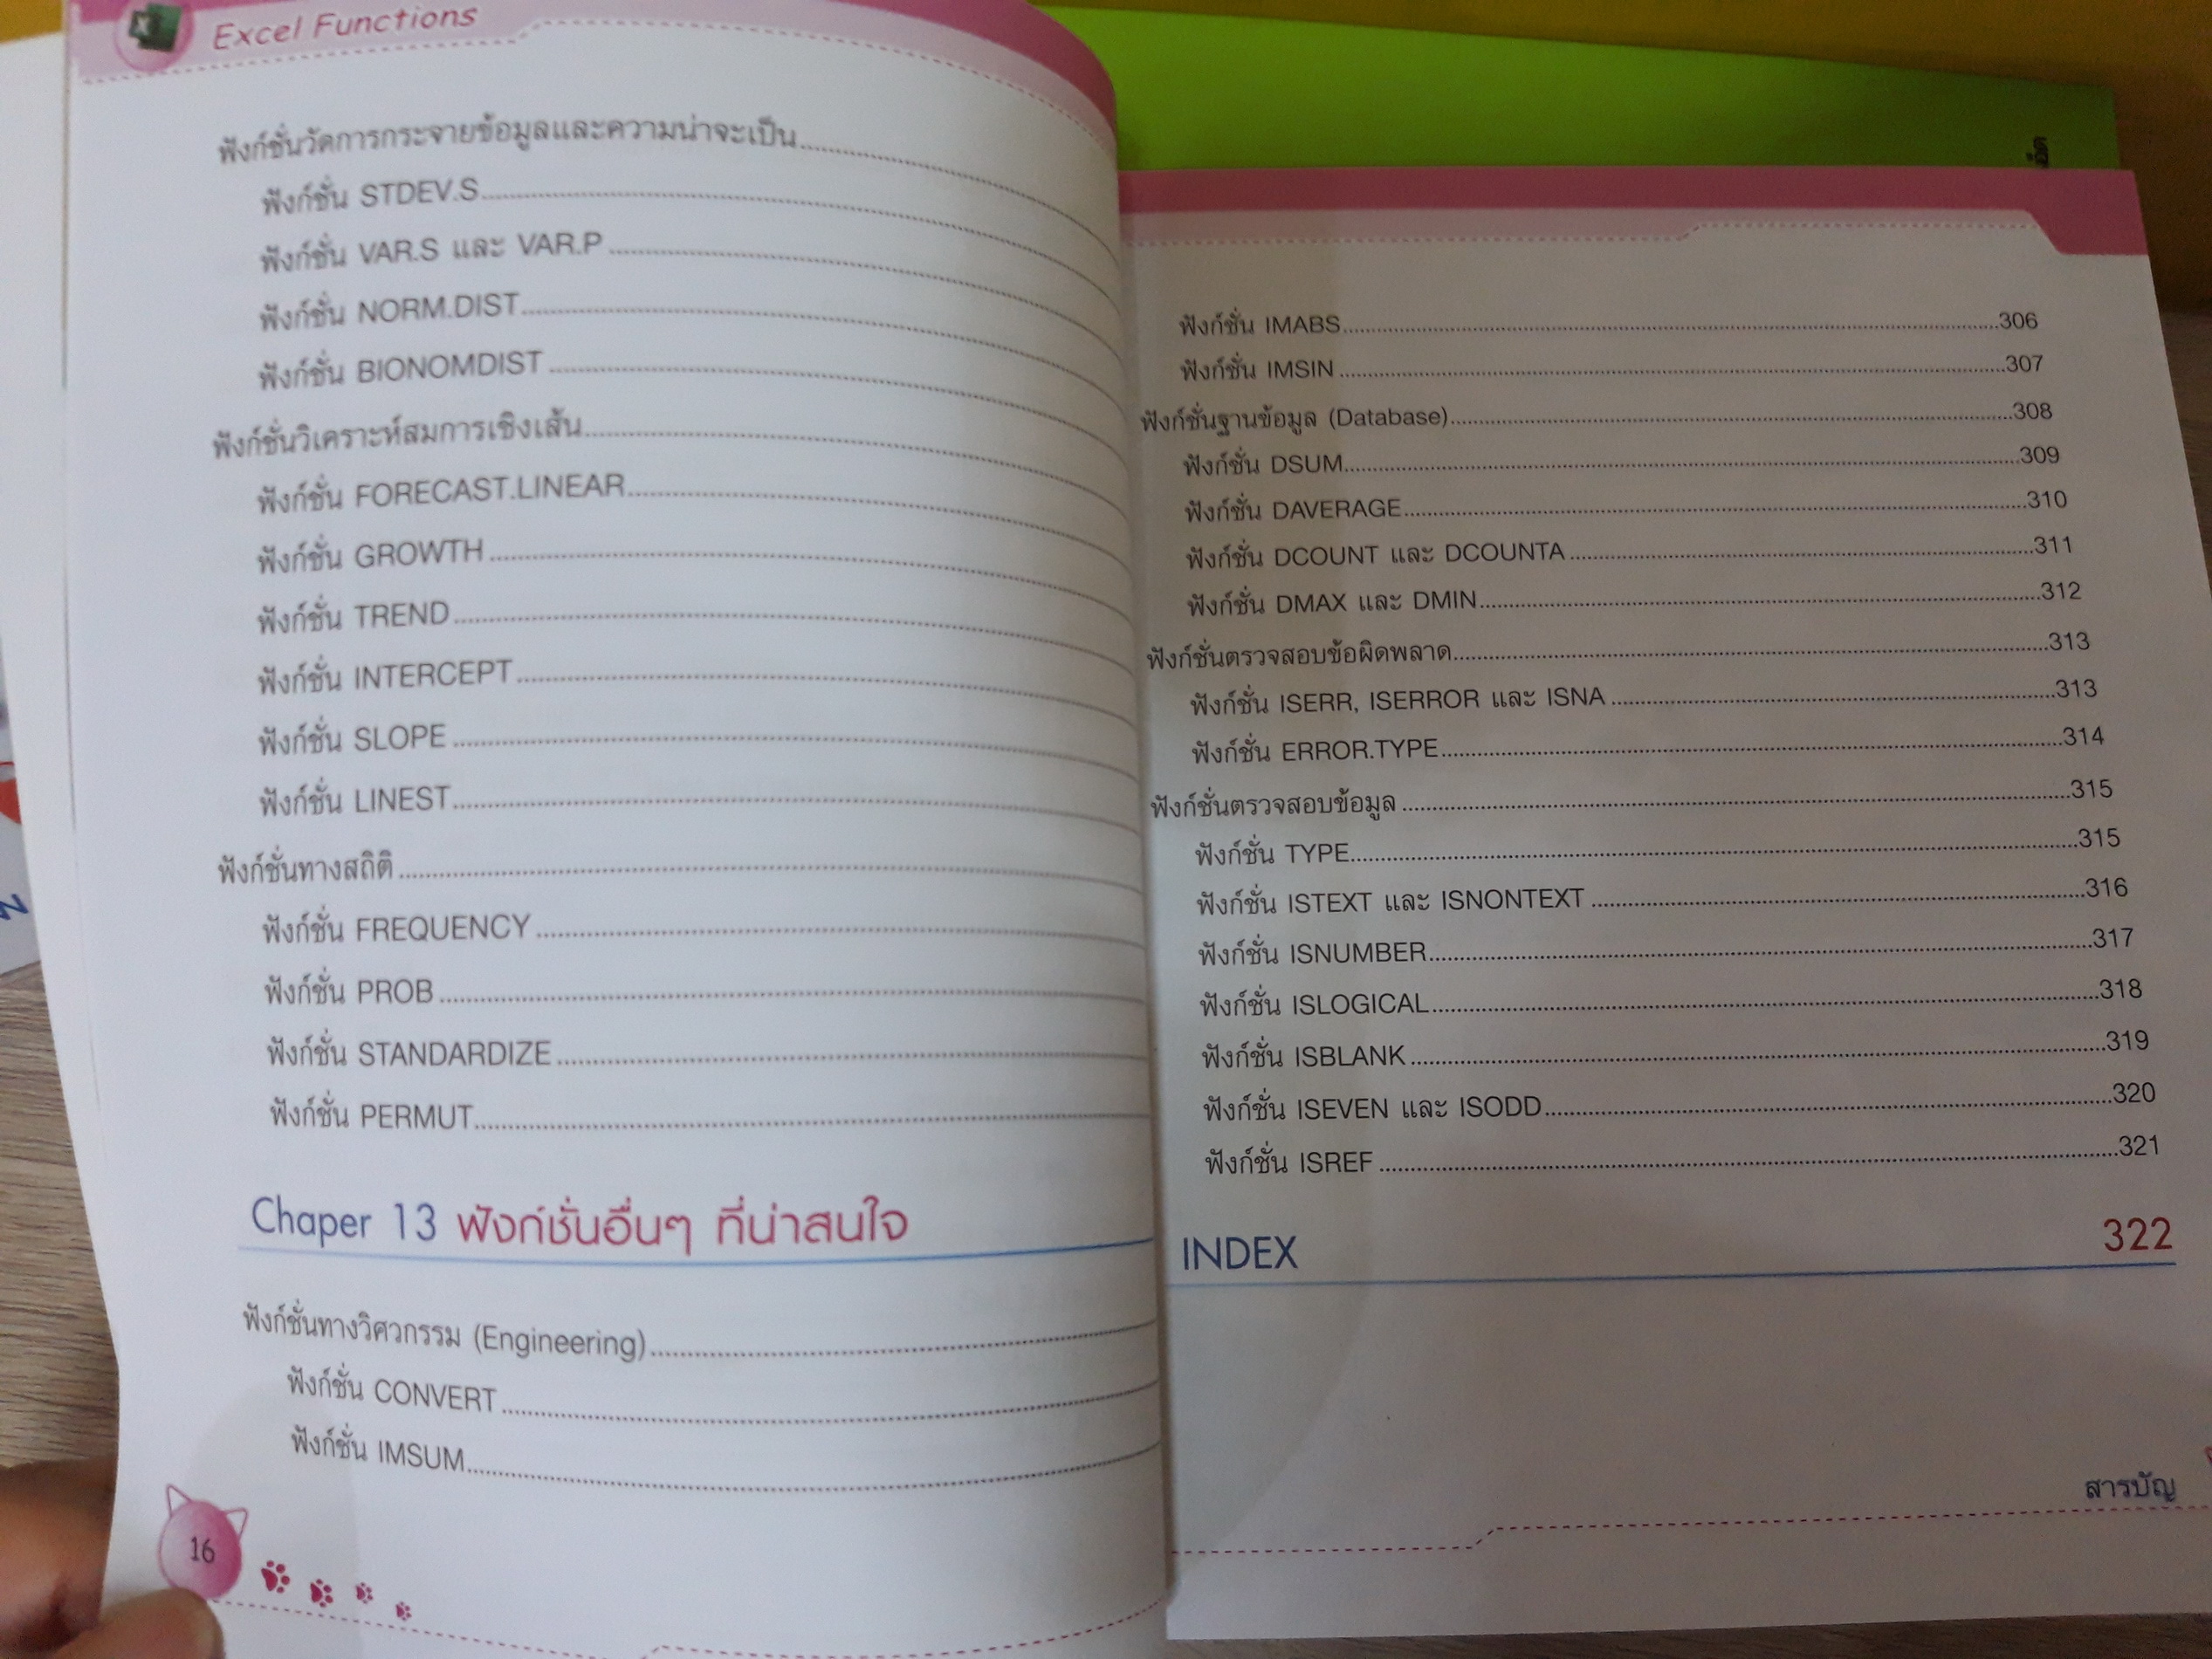 Excel Functions
ฟังก์ชั่นวัดการกระจายข้อมูลและความน่าจะเป็น
ฟังก์ชั่น STDEV.S
ฟังก์ชั่น VAR.S และ VAR.P
ฟังก์ชั่น NORM.DIST
ฟังก์ชั่น BIONOMDIST
ฟังก์ชั่นวิเคราะห์สมการเชิงเส้น
ฟังก์ชั่น FORECAST.LINEAR
ฟังก์ชั่น GROWTH
ฟังก์ชั่น TREND
ฟังก์ชั่น INTERCEPT
ฟังก์ชั่น SLOPE
ฟังก์ชั่น LINEST
ฟังก์ชั่นทางสถิติ
ฟังก์ชั่น FREQUENCY
ฟังก์ชั่น PROB
ฟังก์ชั่น STANDARDIZE
ฟังก์ชั่น PERMUT
Chaper 13 ฟังก์ชั่นอื่นๆ ที่น่าสนใจ
ฟังก์ชั่นทางวิศวกรรม (Engineering)
ฟังก์ชั่น CONVERT
ฟังก์ชั่น IMSUM
16
ฟังก์ชั่น IMABS 306
ฟังก์ชั่น IMSIN 307
ฟังก์ชั่นฐานข้อมูล (Database) 308
ฟังก์ชั่น DSUM 309
ฟังก์ชั่น DAVERAGE 310
ฟังก์ชั่น DCOUNT และ DCOUNTA 311
ฟังก์ชั่น DMAX และ DMIN 312
ฟังก์ชั่นตรวจสอบข้อผิดพลาด 313
ฟังก์ชั่น ISERR, ISERROR และ ISNA 313
ฟังก์ชั่น ERROR.TYPE 314
ฟังก์ชั่นตรวจสอบข้อมูล 315
ฟังก์ชั่น TYPE 315
ฟังก์ชั่น ISTEXT และ ISNONTEXT 316
ฟังก์ชั่น ISNUMBER 317
ฟังก์ชั่น ISLOGICAL 318
ฟังก์ชั่น ISBLANK 319
ฟังก์ชั่น ISEVEN และ ISODD 320
ฟังก์ชั่น ISREF 321
INDEX 322
สารบัญ